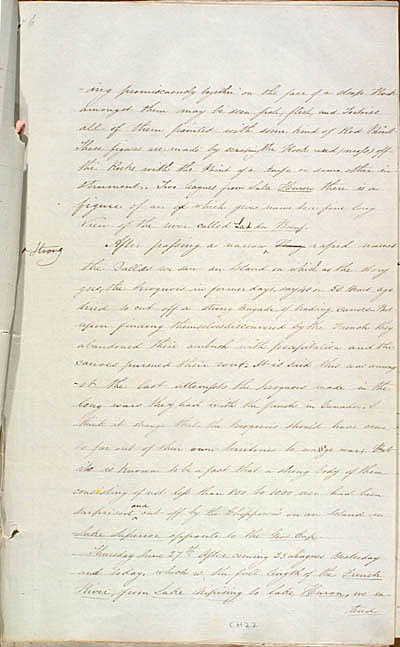 -ing promiscuously together on the face of a steep Rock
amongst them may be seen fish, flesh, and Tortoise
all of them painted with some kind of Red Paint
These figures are made by scraping the Rock off
the Rocks with the Point of a Knife or some other in-
-strument. Two leagues from Lake Huron there is a
figure of an Ox which gives name to a fine long
View of the river called Lac du Bœuf.
After passing a narrow rapid named
Strong
the Dalles we see an Island on which as the story
goes, the Iroquois in former days, say 40 or 50 Years ago
tried to cut off a strong Brigade of trading canoes. But
upon finding themselves discovered by the French they
abandoned their ambush with precipitation and the
canoes pursued their route. It is said this was among
-st the last attempts the Iroquois made in the
long wars they had with the french in Canada. I
think it strange that the Iroquois should have come
so far out of their own territories to wage war; But
it is known to be a fact that a strong body of them
consisting of not less than 800 to 1000 men had been
surprised and cut off by the Chippewas on an Island in
Lake Superior opposite to the Gros Cap.
Thursday June 27th. After coming 25 leagues Yesterday
and today, which is the full length of the French
River, from Lake Nipising to Lake Huron, we en-
-tered
CH22